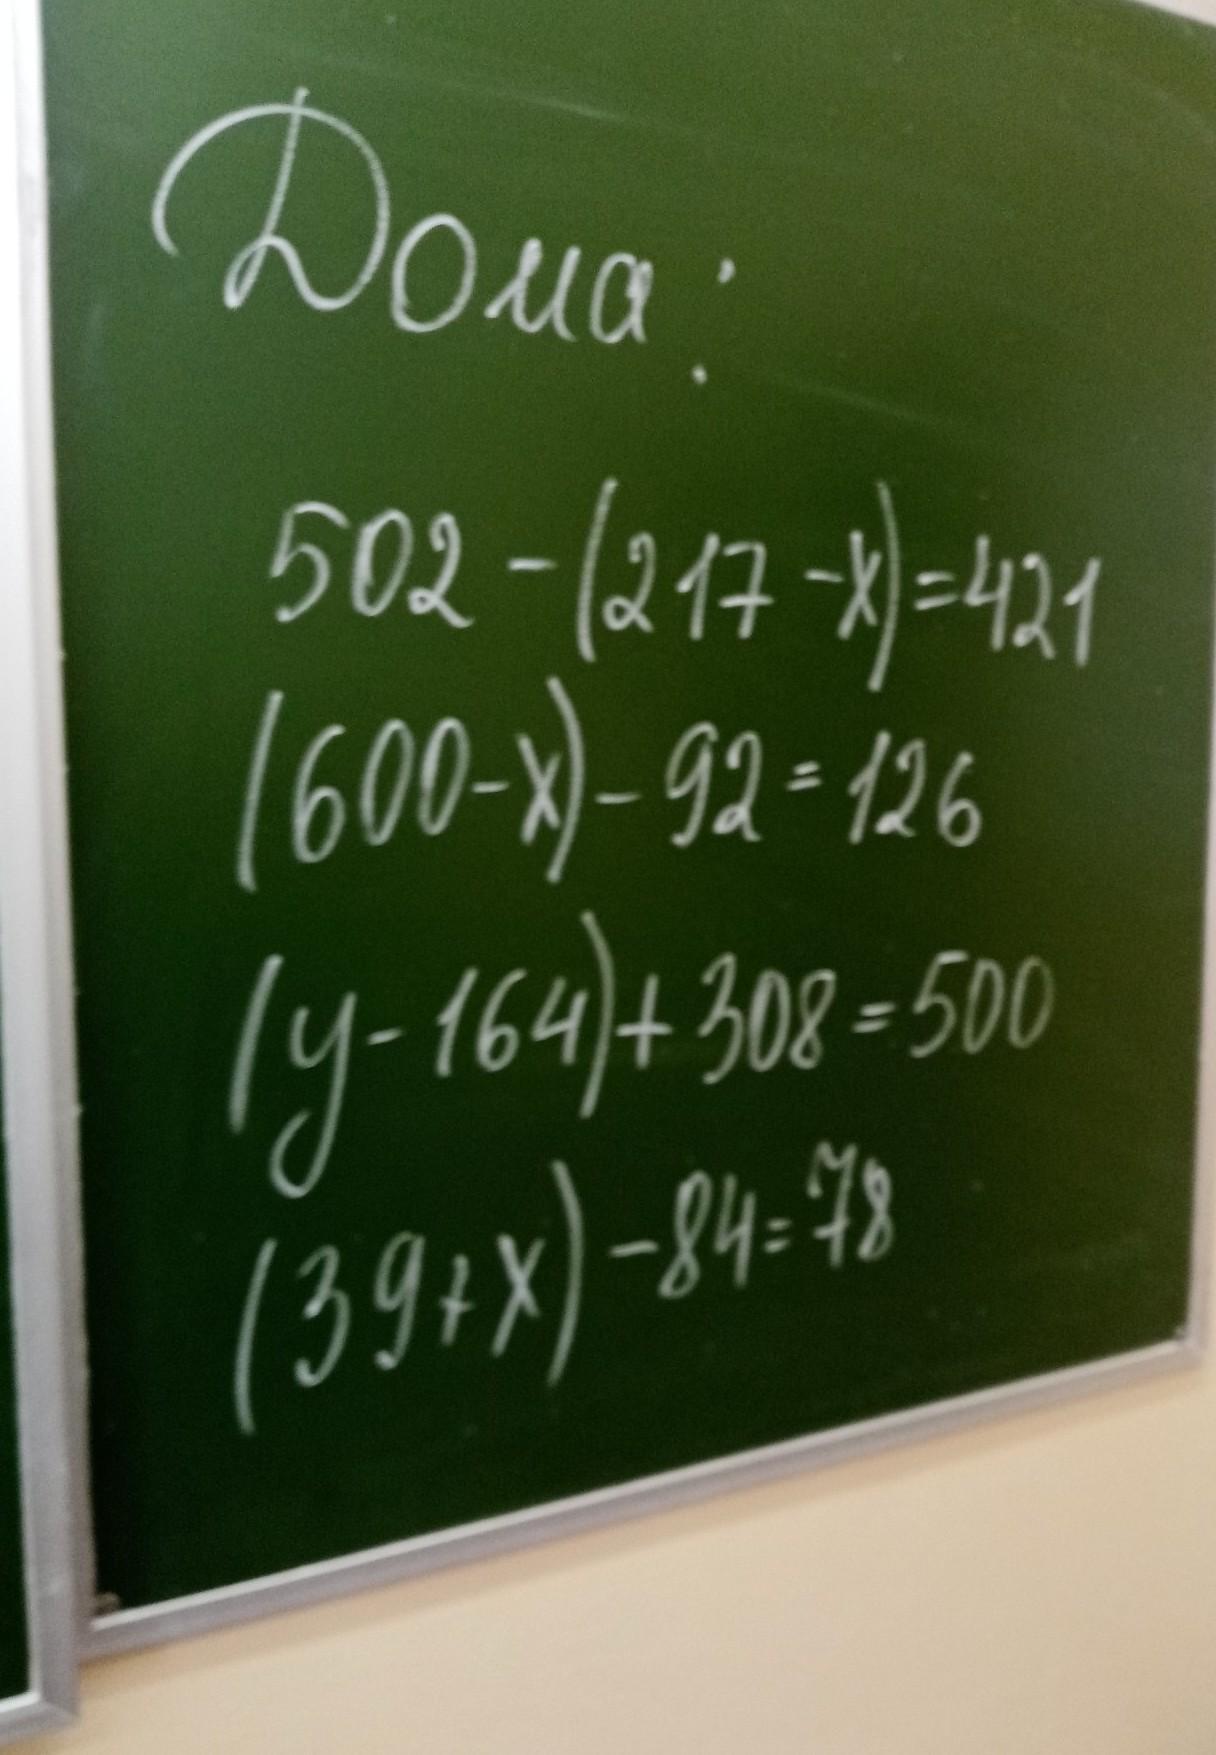 Дома:
502 - (217 - x) = 421
(600 - x) - 92 = 126
(y - 164) + 308 = 500
(39 + x) - 84 = 78